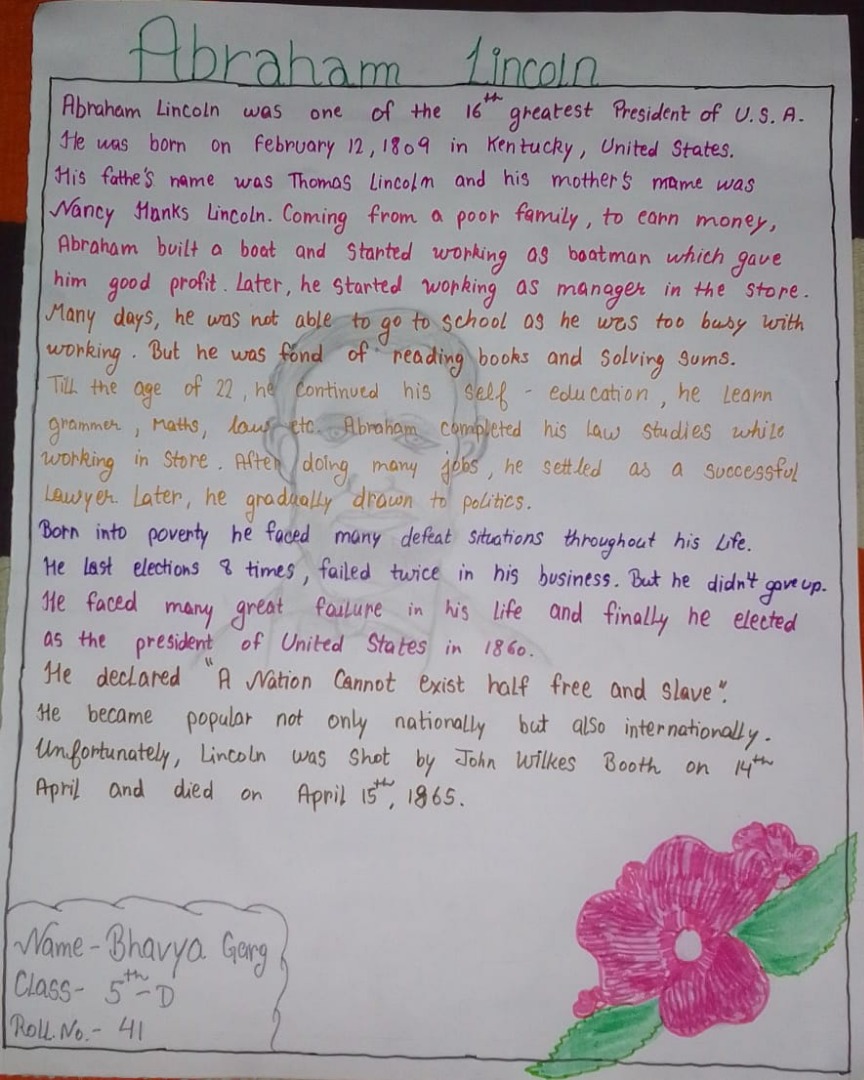 Abraham Lincoln
Abraham Lincoln was one of the 16th greatest President of U.S.A.
He was born on February 12, 1809 in Kentucky, United States.
His fathe's name was Thomas Lincoln and his mother's mame was
Nancy Hanks Lincoln. Coming from a poor family, to earn money,
Abraham built a boat and started working as boatman which gave
him good profit. Later, he started working as manager in the store.
Many days, he was not able to go to school as he was too busy with
working. But he was fond of reading books and solving sums.
Till the age of 22, he continued his self - education, he learn
grammer, Maths, law etc. Abraham completed his law studies while
working in store. After doing many jobs, he settled as a successful
Lawyer. Later, he gradually drawn to politics.
Born into poverty he faced many defeat situations throughout his life.
He last elections 8 times, failed twice in his business. But he didn't gave up.
He faced many great failure in his life and finally he elected
as the president of United States in 1860.
He declared "A Nation Cannot exist half free and slave".
He became popular not only nationally but also internationally.
Unfortunately, Lincoln was shot by John Wilkes Booth on 14th
April and died on April 15th, 1865.
Name - Bhavya Garg
Class - 5th - D
Roll. No. - 41